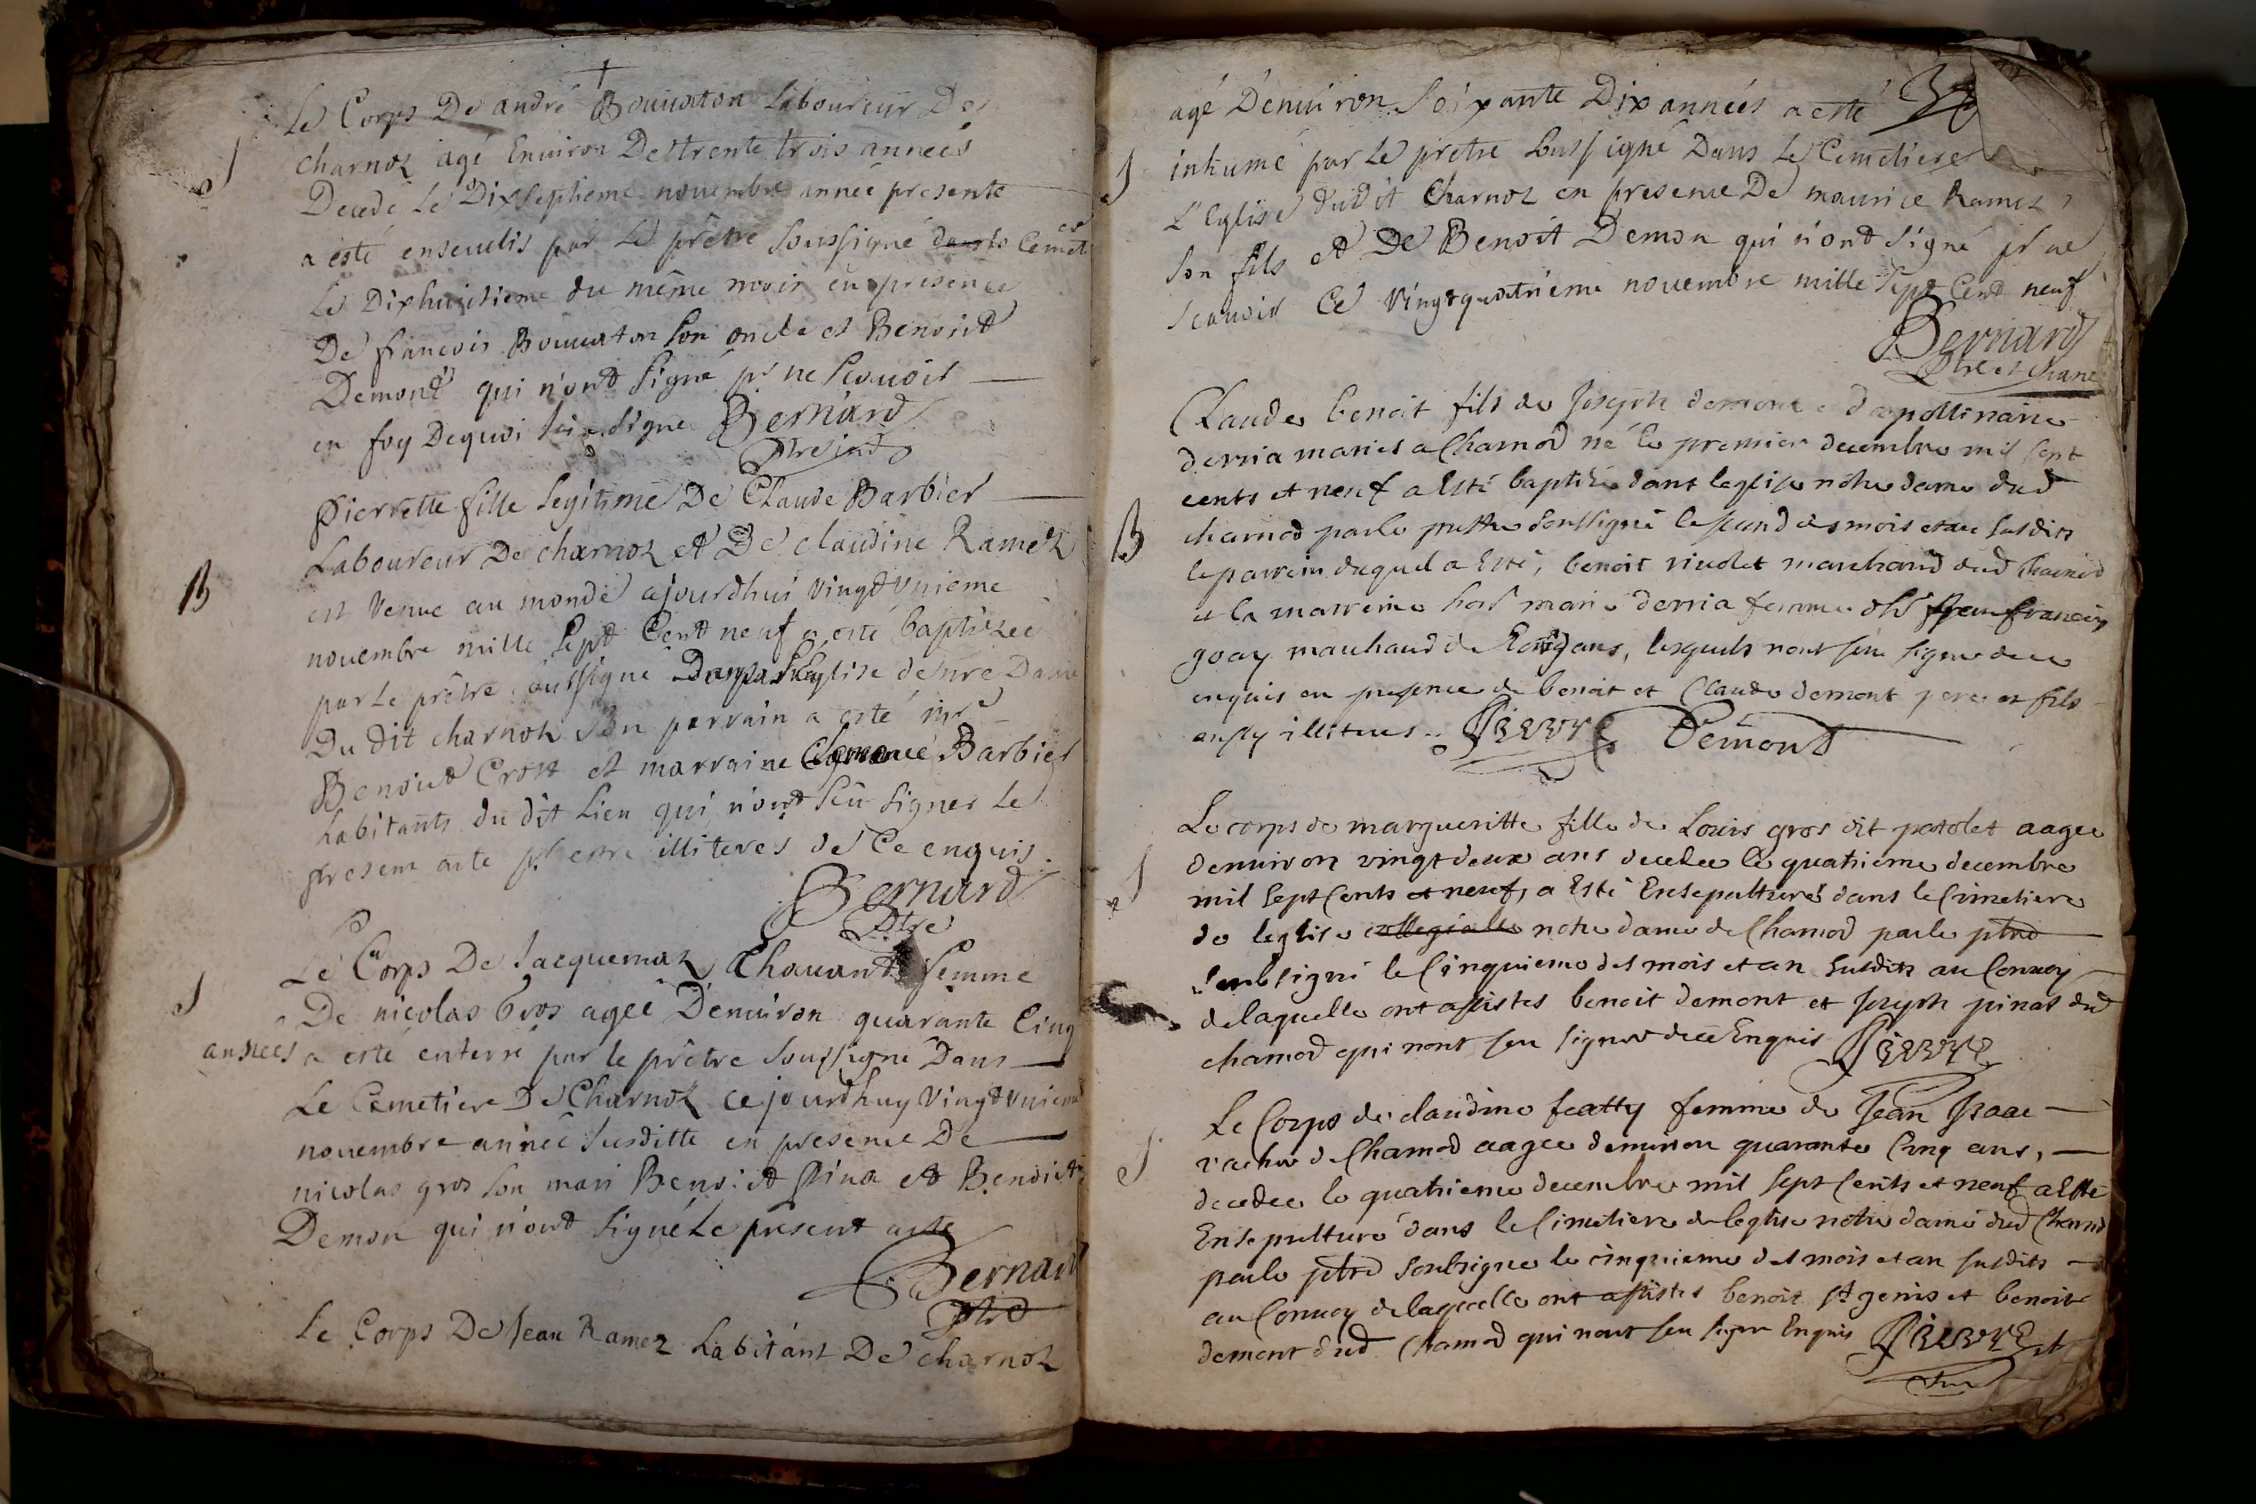 Le Corps De andré Bouuaton Laboureur De
charnoz agé Enuiron De trente trois années
Decedé Le Dixseptieme nouembre année presente
a esté enseuelis par Le prêtre Soussigné dans le Cemet
Le Dixhuitieme du même mois en presence
De francois Bouuaton Son oncle et Benoist
Demont qui n'ont Signé pr ne Scauoir
en foy Dequoi Signe Bernard
Ptre
Pierrette fille Legitime De Claude Barbier
B
Laboureur De charnoz et De claudine Ramez
est Venue au monde ajourdhui vingt Vnieme
nouembre mille Sept Cent neuf a esté baptisee
par Le prêtre soussigné Dans L'Eglise de nre Dame
Du dit charnoz Son parrain a esté
Benoist Crost et marraine Barbier
habitants du dit Lieu qui n'ont Sçu Signer Le
present acte pr estre illiteres de Ce enquis
Bernard
Ptre
Le Corps De Jacquemaz Chauant femme
De nicolas Gros agee D'enuiron quarante Cinq
années a esté enterré par le prêtre Soussigné Dans
Le Cemetiere De Charnoz ce jourdhuy Vingt Vnieme
nouembre année Susditte en presence De
nicolas gros Son mari Benoist Pina et Benoist
Demon qui n'ont Signé Le present acte
Bernard
ptre
Le Corps De Jean Ramez habitant De charnoz
agé D'enuiron Soixante Dix années a esté
inhumé par Le prêtre Soussigné Dans Le Cemetiere
L'Eglise dudit Charnoz en presence De maurice Ramez
Son fils et De Benoit Demon qui n'ont Signé pr ne
Scauoir Ce Vingtquatrieme nouembre mille Sept Cent neuf
Bernard
Ptre et
Claude benoit fils de Joseph demont d'apollinaire
derria maries a Chamod né le premier decembre mil sept
cents et neuf a Esté baptisé dans leglise notre dame dud
B
chamod par le prestre soussigné le second des mois et an susdits
le parrein duquel a Esté, benoit riuolet marchand dud Chamod
et la marreine marie derria femme de Sr Jean francois
goay marchand de, lesquels nont sceu signe de ce
enquis en presence de benoit et Claude demont pere et fils
aussy illiteres. Pierre Demont
Le corps de margueritte fille de Louis gros dit patolet aagee
denuiron vingt deux ans decedee le quatrieme decembre
mil sept Cents et neuf, a Esté Ensepulturé dans le Cimetiere
de leglise collegialle notre dame de Chamod par le ptre
soubsigné le Cinquieme des mois et an susdits au Conuoy
de laquelle ont assistes benoit demont et Joseph pinas dud
chamod qui nont sceu signer de ce Enquis Pierre
Le Corps de claudine featty femme de Jean Isaac
vacher de Chamod aagee denuiron quarante Cinq ans,
decedee le quatrieme decembre mil sept Cents et neuf a Esté
Ensepulturé dans le Cimetiere de leglise notre dame dud Chamod
par le ptre soubsigne le cinquieme des mois et an susdits
au Conuoy de laquelle ont assistes benoit st genis et benoit
demont dud Chamod qui nont sceu signer Enquis Pierre